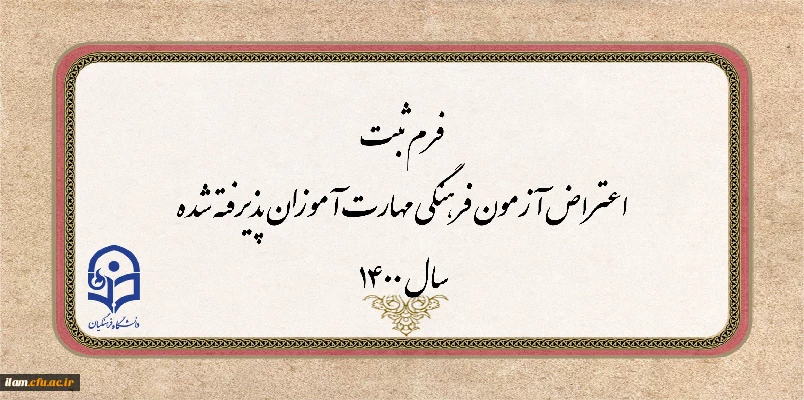 فرم ثبت
اعتراض آزمون فرهنگی مهارت آموزان پذیرفته شده
سال ۱۴۰۰
دانشگاه فرهنگیان
ilam.cfu.ac.ir